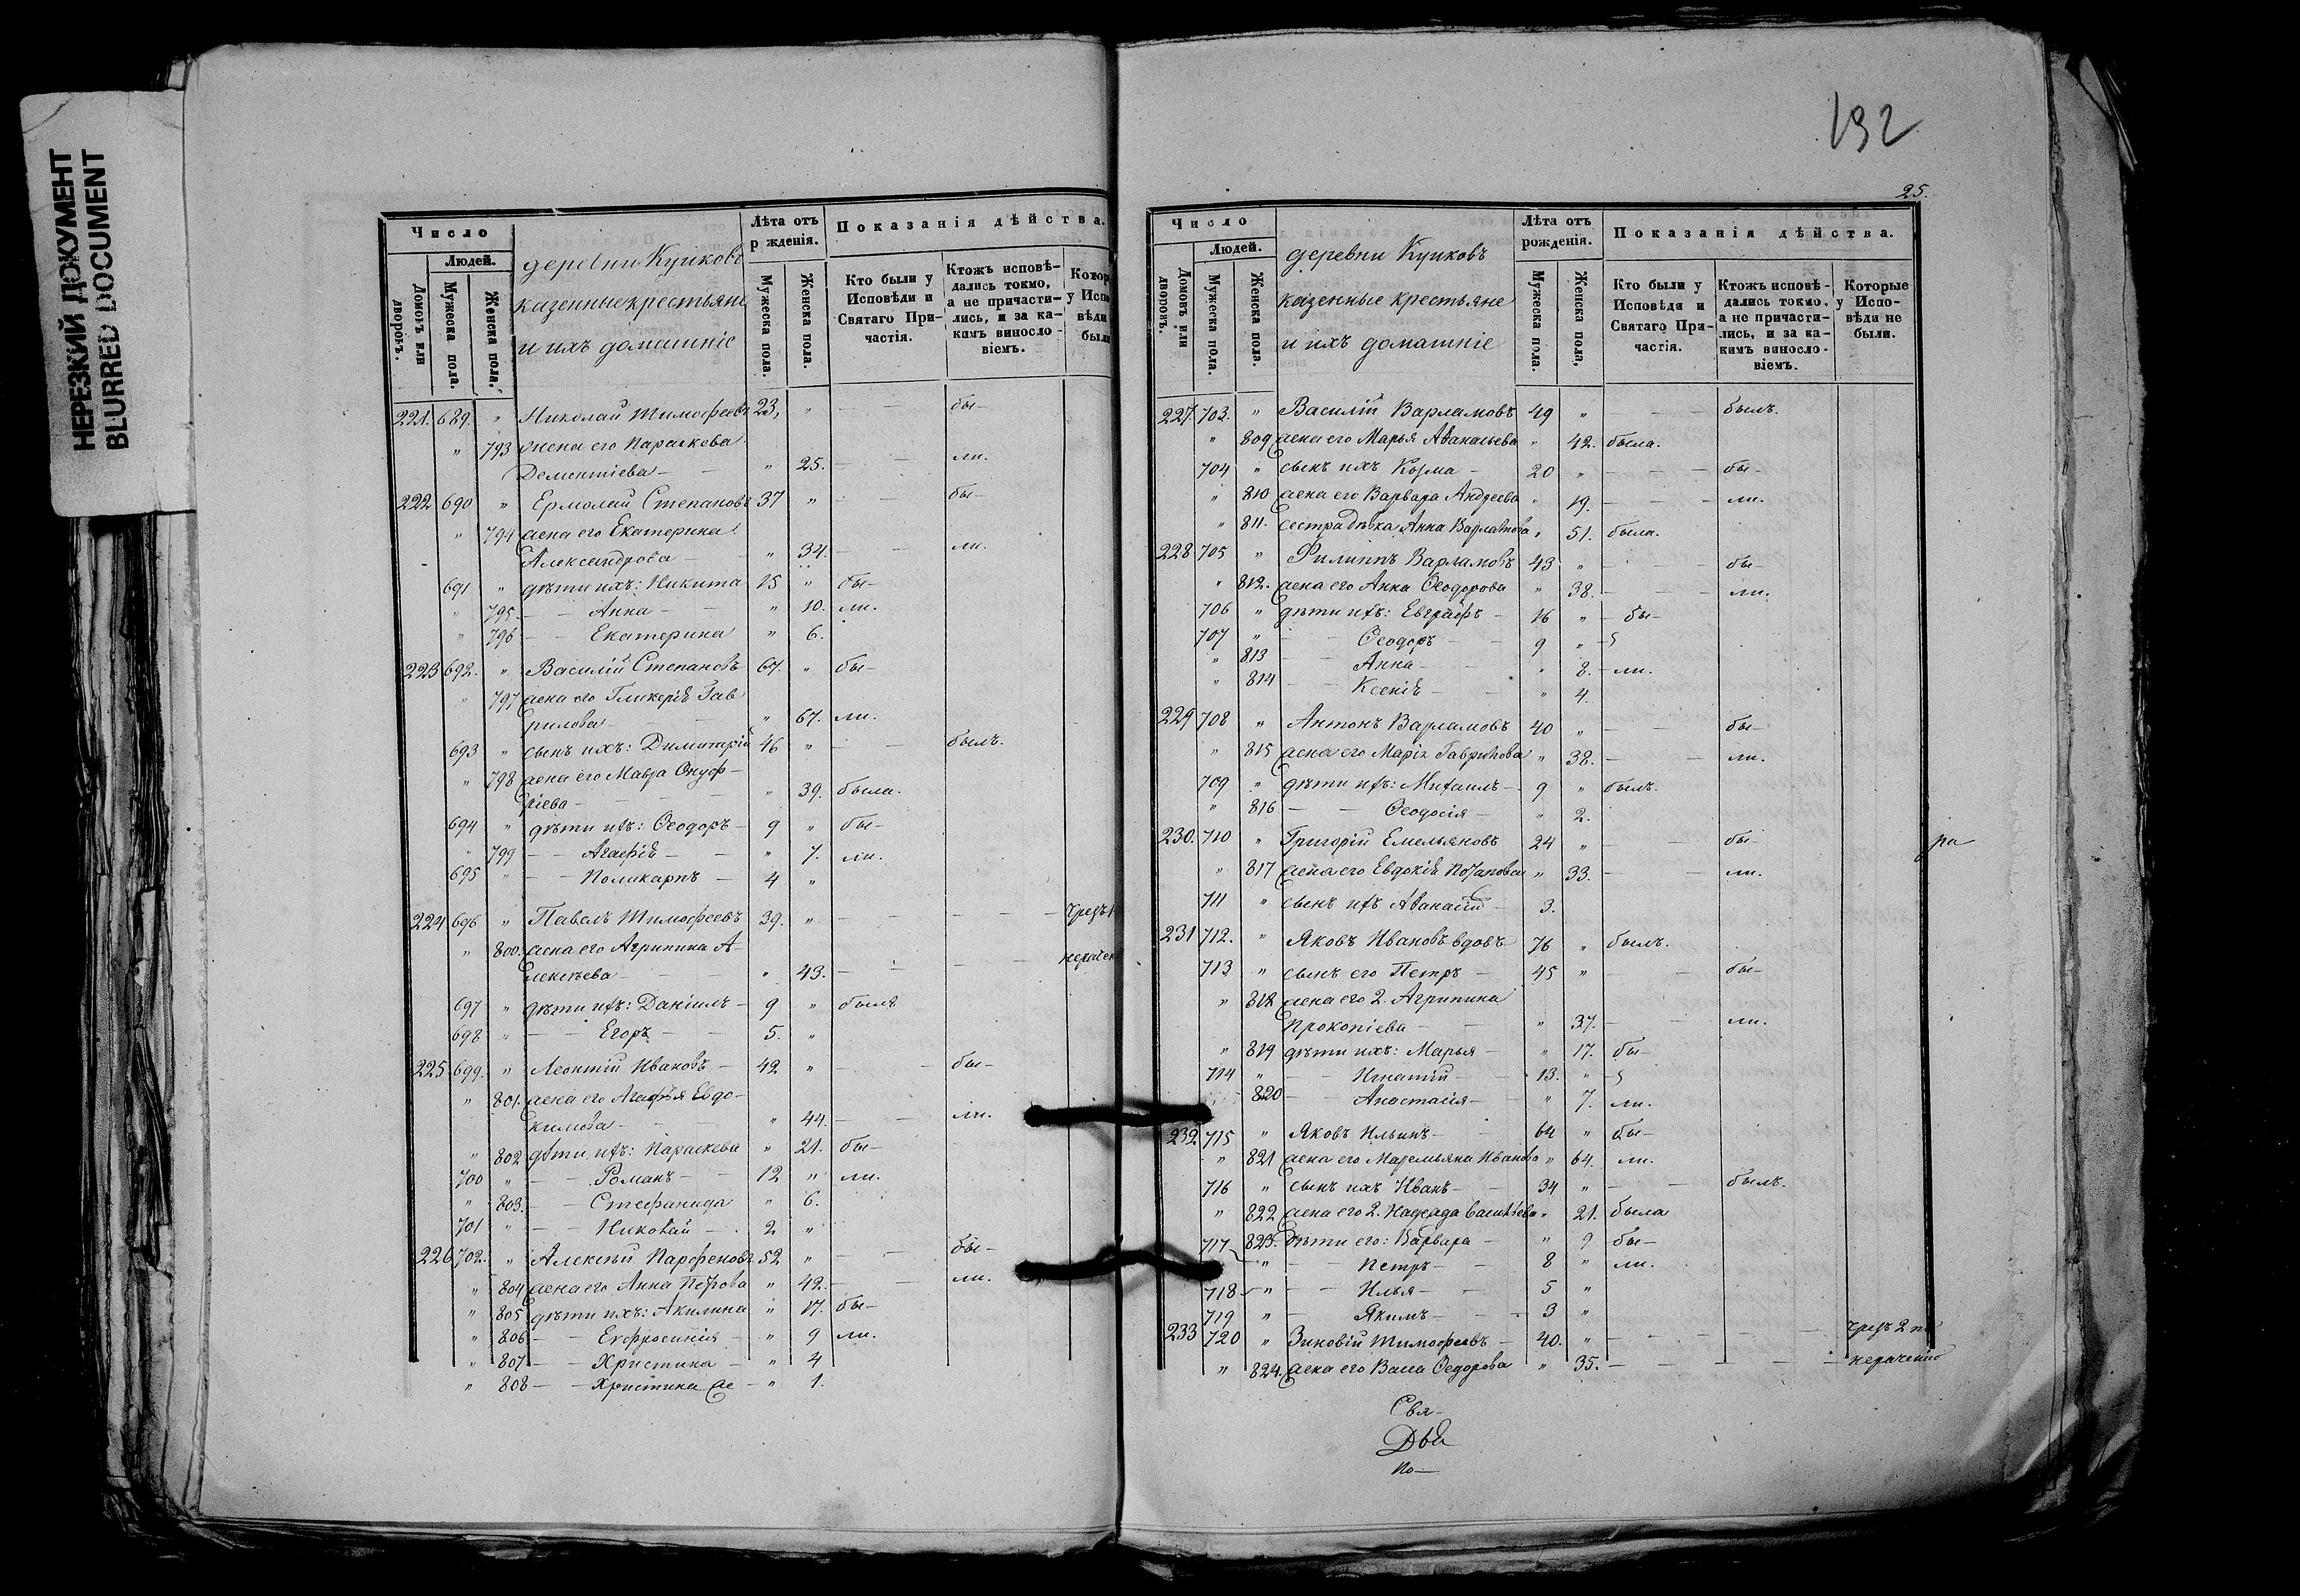 НЕРЕЗКИЙ ДОКУМЕНТ
BLURRED DOCUMENT
Число
Людей.
Домовъ или дворовъ.
Мужеска пола.
Женска пола.
деревни Купковъ
казенные крестьяне
и ихъ домашніе
Лѣта отъ
р жденія.
Мужеска пола.
Женска пола.
Показанія дѣйства.
Кто были у
Исповѣди и
Святаго При-
частія.
Ктожъ исповѣ-
дались токмо,
а не причасти-
лись, и за ка-
кимъ винословіемъ.
221. 689. " Николай Тимофеевъ 23, " — бы-
" 793 жена его Параскева
Дементіева — " 25. — ли.
222 690 " Ермолай Степановъ 37 " — бы-
" 794 жена его Екатерина
Александрова — " 34. — ли.
691 " дѣти ихъ: Никита 15 " бы-
" 795 — Анна — " 10. ли.
" 796 — Екатерина " 6.
223 692. " Василій Степановъ 67. " бы-
" 797 жена его Гликерія Гав
рилова — " 67. ли.
693 " сынъ ихъ: Димитрій 46 " — былъ.
" 798 жена его Мавра Онуф-
ріева — " 39. была.
694 " дѣти ихъ: Ѳеодоръ — 9 " бы-
" 799 — Агафія — " 7. ли.
695 " — Поликарпъ — 4 "
224 696 " Павелъ Тимофеевъ 39. " — чрезъ
" 800. жена его Агрипина А-
лексѣева — " 43. — нерачен
697 " дѣти ихъ: Даніилъ — 9 " былъ
698 " — Егоръ — 5. "
225 699. " Леонтій Ивановъ — 42 " — бы-
" 801. жена его Агафья Евдо-
кимова — " 44. — ли.
" 802 дѣти ихъ: Параскева " 21. бы-
700 " — Романъ — 12 " ли.
" 803. — Стефанида " 6.
701 " — Николай — 2 "
226 702. " Алексѣй Парфеновъ 52 " — бы-
" 804 жена его Анна Петрова " 42. — ли.
" 805 дѣти ихъ: Акилина " 17. бы-
" 806 — Евфросинія — " 9 ли.
" 807 — Христина — " 4
" 808 — Христина же — " 1.
192
25.
Число
Людей.
Домовъ или дворовъ.
Мужеска пола.
Женска пола.
деревни Купковъ
казенные крестьяне
и ихъ домашніе
Лѣта отъ
рожденія.
Мужеска пола.
Женска пола.
Показанія дѣйства.
Кто были у
Исповѣди и
Святаго При-
частія.
Ктожъ исповѣ-
дались токмо,
а не причасти-
лись, и за ка-
кимъ винословіемъ.
Которые
у Испо-
вѣди не
были.
227. 703. " Василій Варламовъ 49 " — былъ.
" 809 жена его Марья Аѳанасьева " 42. была.
704 " сынъ ихъ Козма — 20 " — бы-
" 810 жена его Варвара Андреева " 19. — ли.
" 811. сестра дѣвка Анна Варламова " 51. была.
228 705 " Филиппъ Варламовъ 43 " — бы-
" 812. жена его Анна Ѳеодорова " 38. — ли.
706 " дѣти ихъ: Евграфъ — 16 " — бы-
707 " — Ѳеодоръ — 9 "
" 813 — Анна — " 8. — ли.
" 814 — Ксенія — " 4.
229 708 " Антонъ Варламовъ 40 " — бы-
" 815 жена его Марія Гаврилова " 38. — ли.
709 " дѣти ихъ: Михаилъ — 9 " былъ.
" 816 — Ѳеодосія — " 2.
230. 710 " Григорій Емельяновъ 24 " — бы-
" 817 жена его Евдокія Потапова " 33. — ли.
711 " сынъ ихъ Аѳанасій — 3.
231 712. " Яковъ Ивановъ вдовъ 76 " былъ.
713 " сынъ его Петръ — 45 " — бы-
" 818 жена его 2. Агрипина
Прокопіева — " 37. — ли.
" 819 дѣти ихъ: Марья — " 17. бы-
714 " — Игнатій — 13. "
820 — Анастасія — " 7. ли.
232. 715 " Яковъ Ильинъ — 64 " бы-
" 821 жена его Маремьяна Иванова " 64. ли.
716 " сынъ ихъ Иванъ — 34 " — былъ.
" 822 жена его 2. Надежда Васильева " 21. была
823. дѣти его: Варвара — " 9 бы-
717 " — Петръ — 8 " ли.
718 " — Илья — 5 "
719 " — Якимъ — 3 "
233 720 " Зиновій Тимофеевъ — 40. " — чрезъ 2 по
" 824. жена его Васса Ѳедорова " 35. — нераченію
Свя-
по-